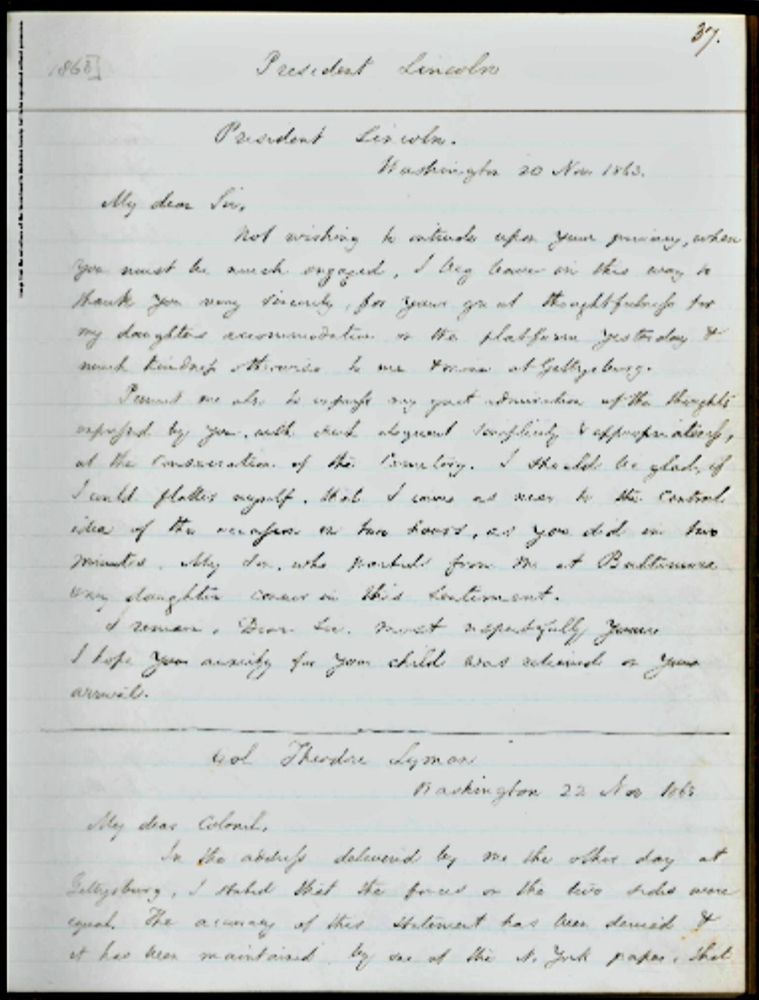 37.
1863]
President Lincoln
President Lincoln.
Washington 20 Nov 1863.
My dear Sir,
Not wishing to intrude upon your privacy, when
you must be much engaged, I beg leave in this way to
thank you very sincerely, for your great thoughtfulness for
my daughters accommodation on the platform yesterday &
much kindness otherwise to me & mine at Gettysburg.
Permit me also to express my great admiration of the thoughts
expressed by you, with such eloquent simplicity & appropriateness,
at the Consecration of the Cemetery. I should be glad, if
I could flatter myself, that I came as near to the central
idea of the occasion in two hours, as you did in two
minutes. My son, who parted from me at Baltimore
& my daughter concur in this sentiment.
I remain, Dear Sir, most respectfully Yours
I hope your anxiety for your child was relieved on your
arrival.
Col Theodore Lyman
Washington 22 Nov 1863
My dear Colonel,
In the address delivered by me the other day at
Gettysburg, I stated that the forces on the two sides were
equal. The accuracy of this statement has been denied &
it has been maintained by one of the N. York papers, that